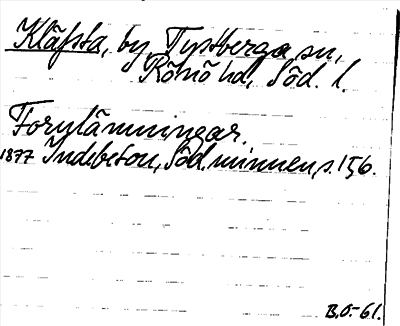 Kläfsta, by Tystberga sn,
Rönö hd, Söd. l.
Fornlämningar.
1877 Indebetou, Söd. minnen, s. 156.
B.O.-61.